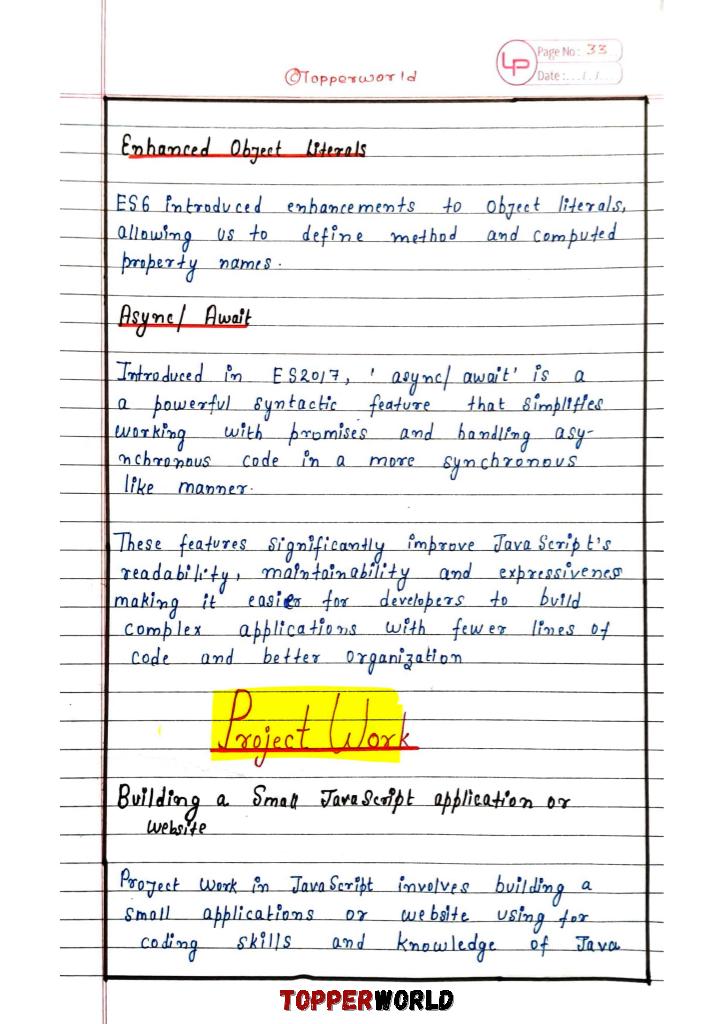 ©Topperworld
LP
Page No: 33
Date:.../../...
Enhanced Object Literals
ES6 introduced enhancements to object literals,
allowing us to define method and computed
property names.
Async/ Await
Introduced in ES2017, 'async/ await' is a
a powerful syntactic feature that simplifies
working with promises and handling asy-
nchronous code in a more synchronous
like manner.
These features significantly improve JavaScript's
readability, maintainability and expressiveness
making it easier for developers to build
complex applications with fewer lines of
code and better organization
Project Work
Building a Small JavaScript application or
website
Project Work in JavaScript involves building a
small applications or website using for
coding skills and knowledge of Java
TOPPERWORLD